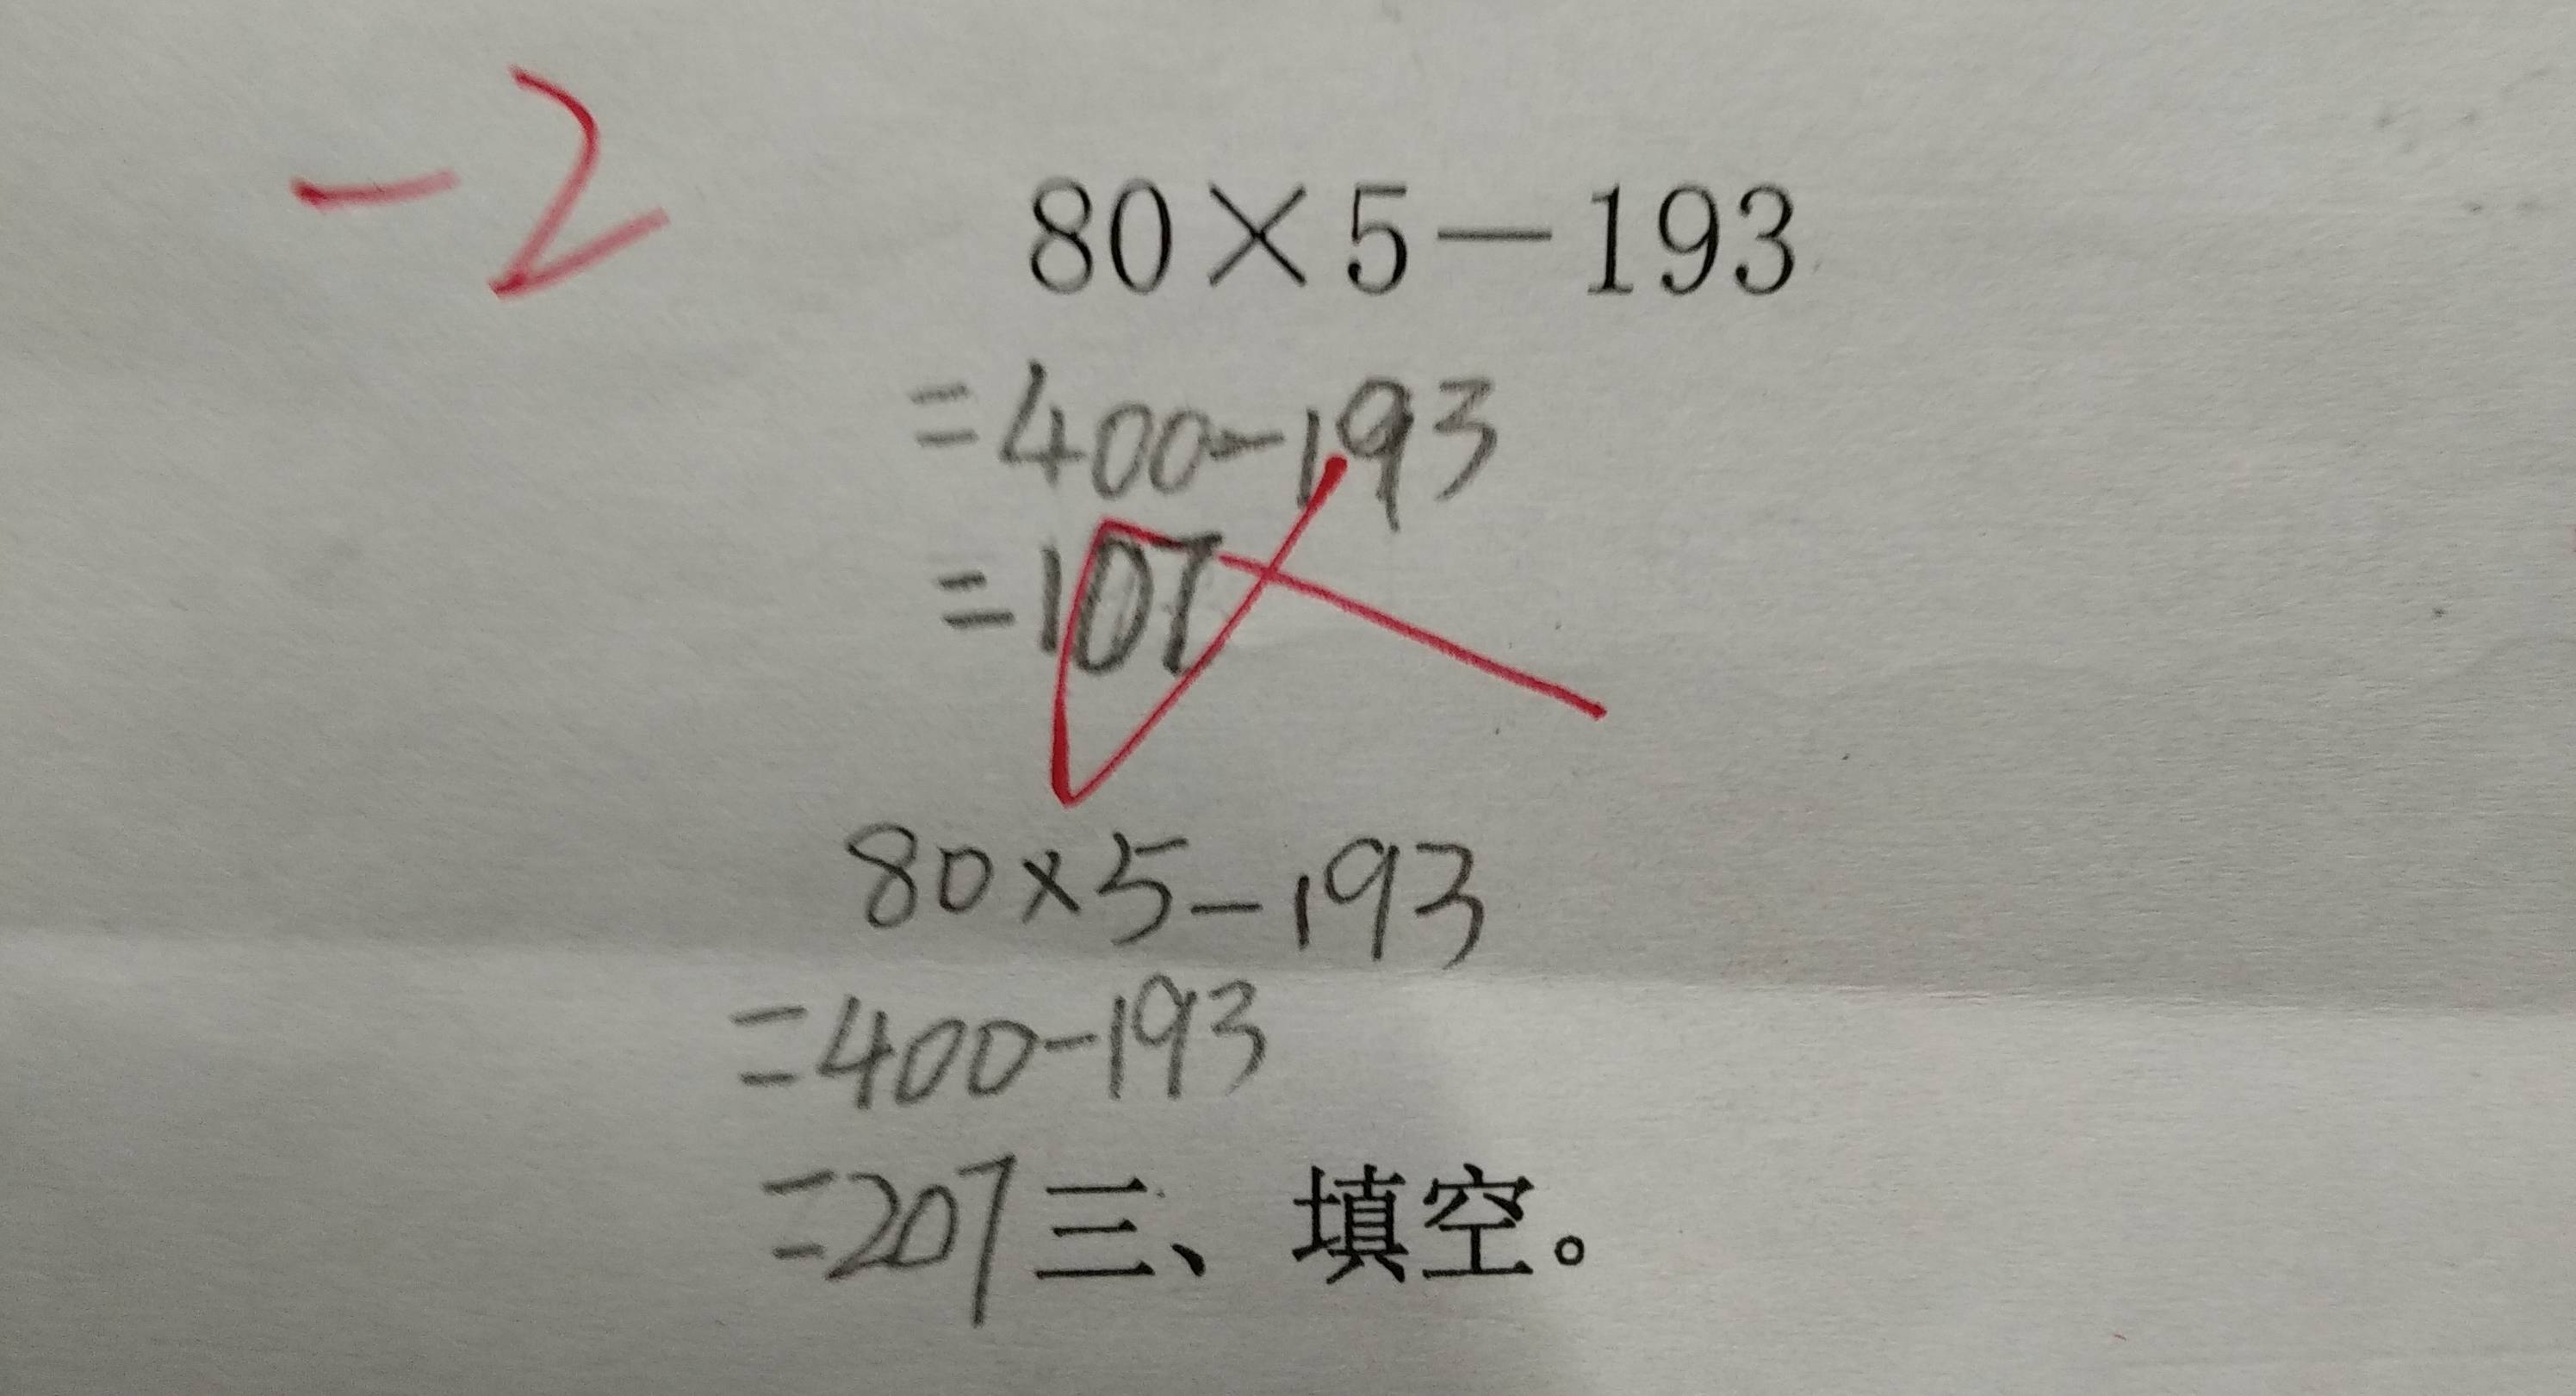 -2
80×5-193
=400-193
=107
80×5-193
=400-193
=207
三、填空。